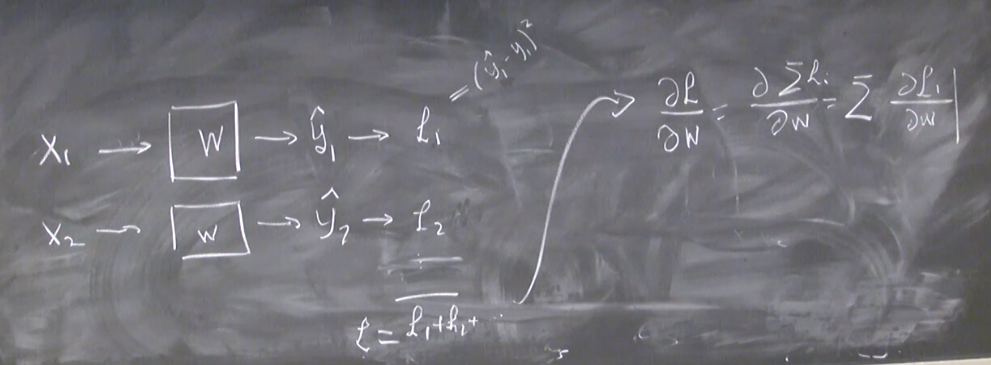 X₁ → W → ŷ₁ → ℒ₁ = (ŷ₁ - y₁)²
X₂ → W → ŷ₂ → ℒ₂
ℒ = ℒ₁ + ℒ₁ + ...
∂ℒ/∂W = ∂Σℒᵢ/∂W = Σ ∂ℒᵢ/∂W |